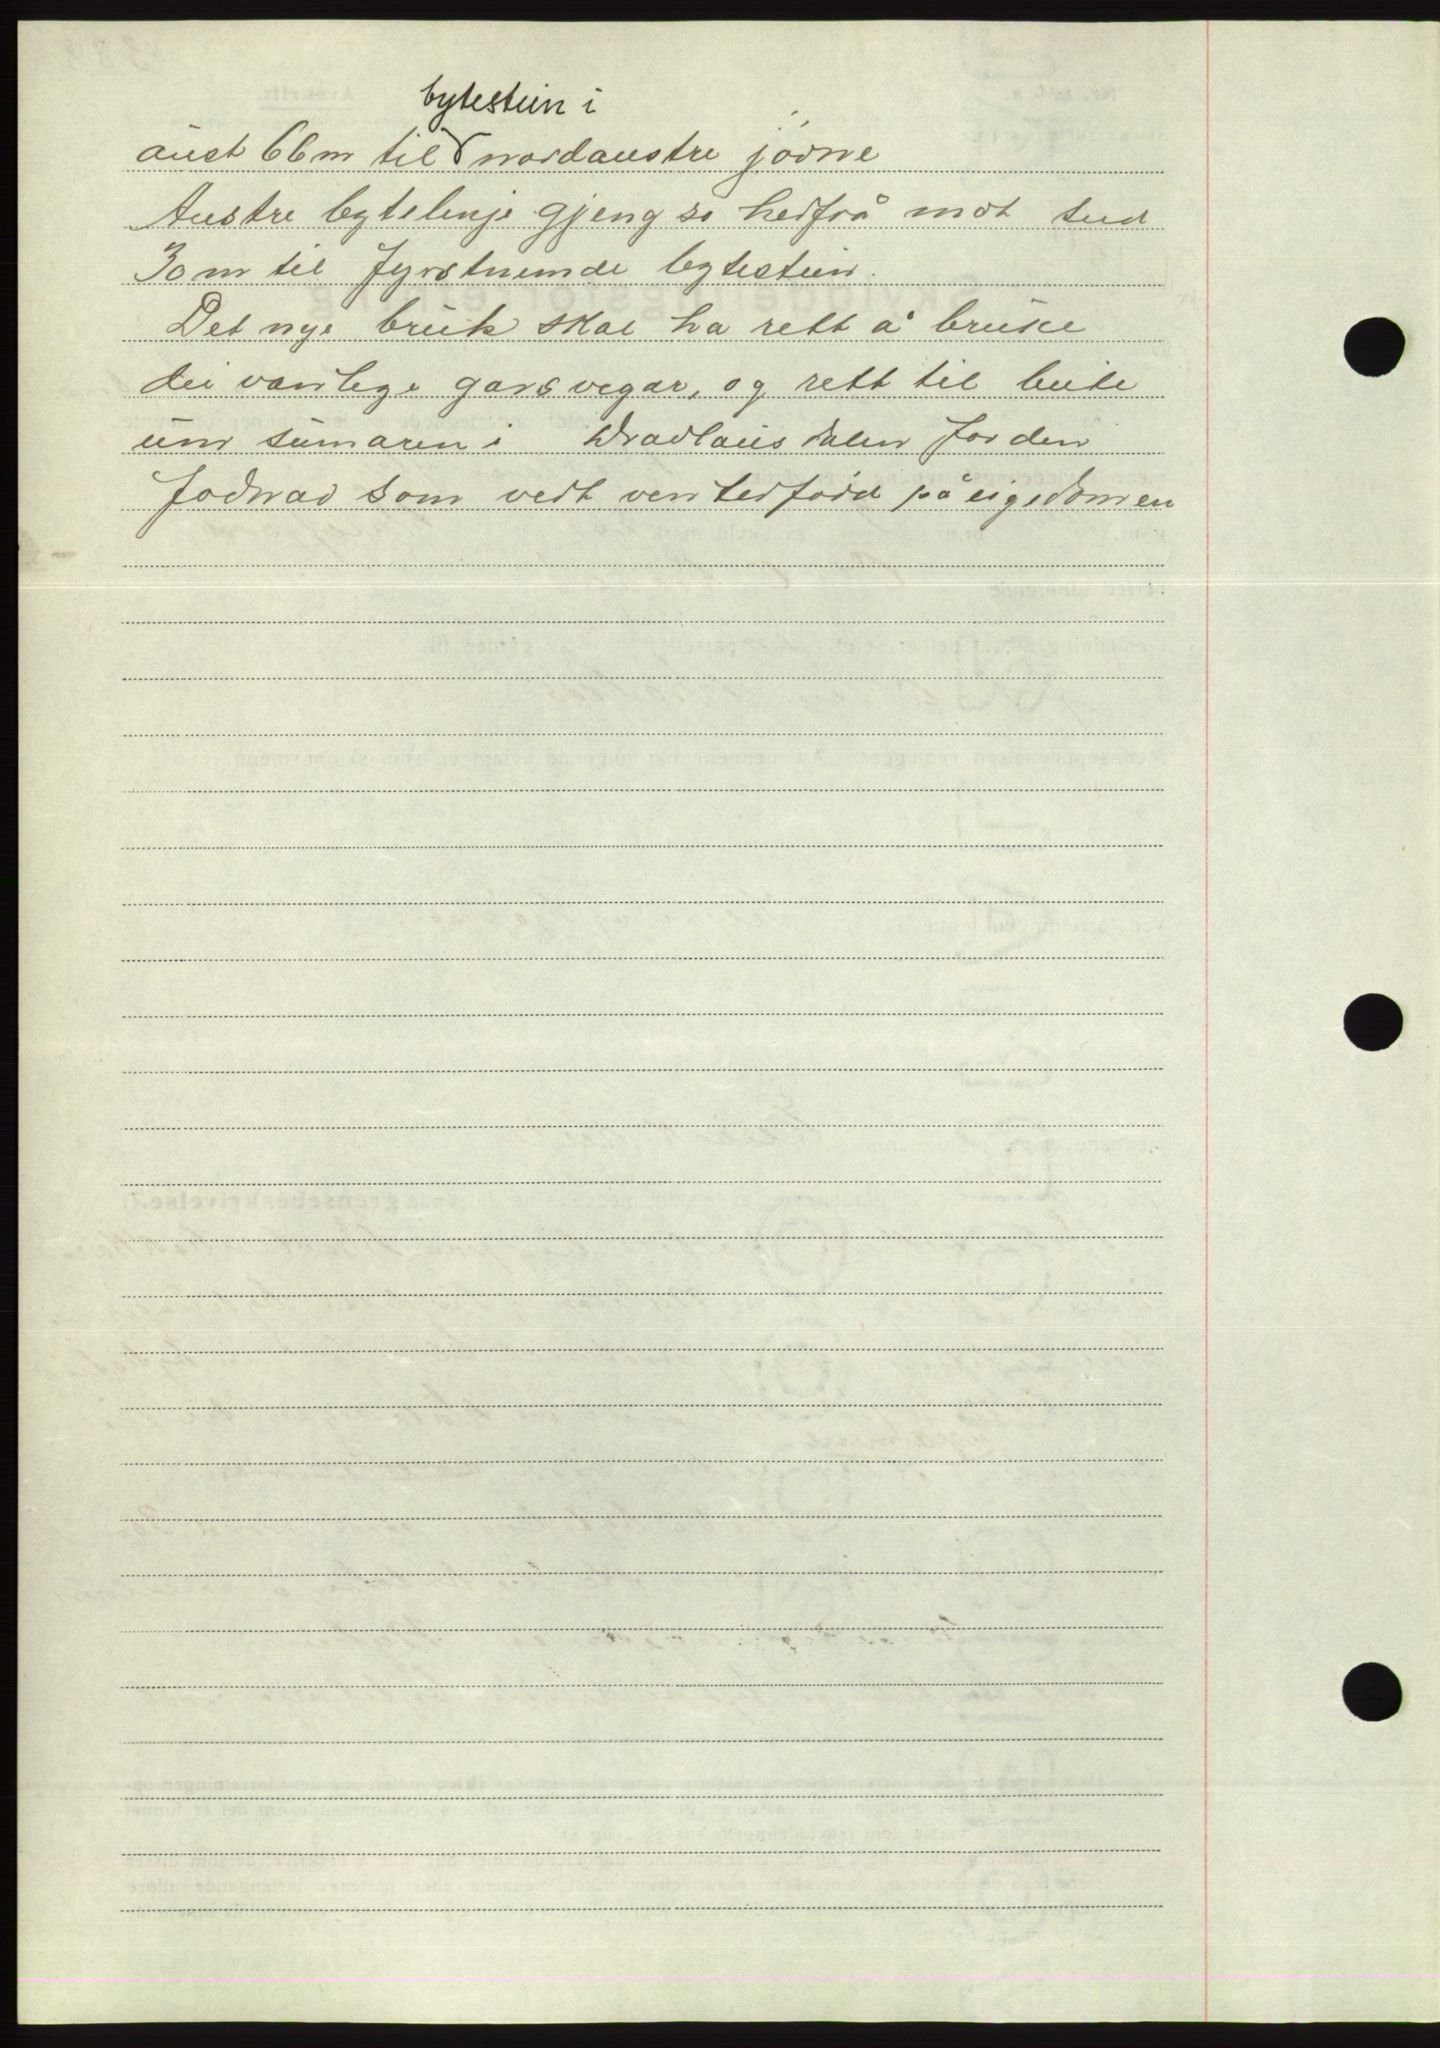 bytestein i
aust 66 m til nordaustre jödne
Austre bytelinje gjeng so herfrå mot sud
30 m til fyrstnemde bytestein.
Det nye bruk skal ha rett å bruke
dei vanlege garsvegar, og rett til beite
um sumaren i dalen for den
som vert venterförd på eigedomen